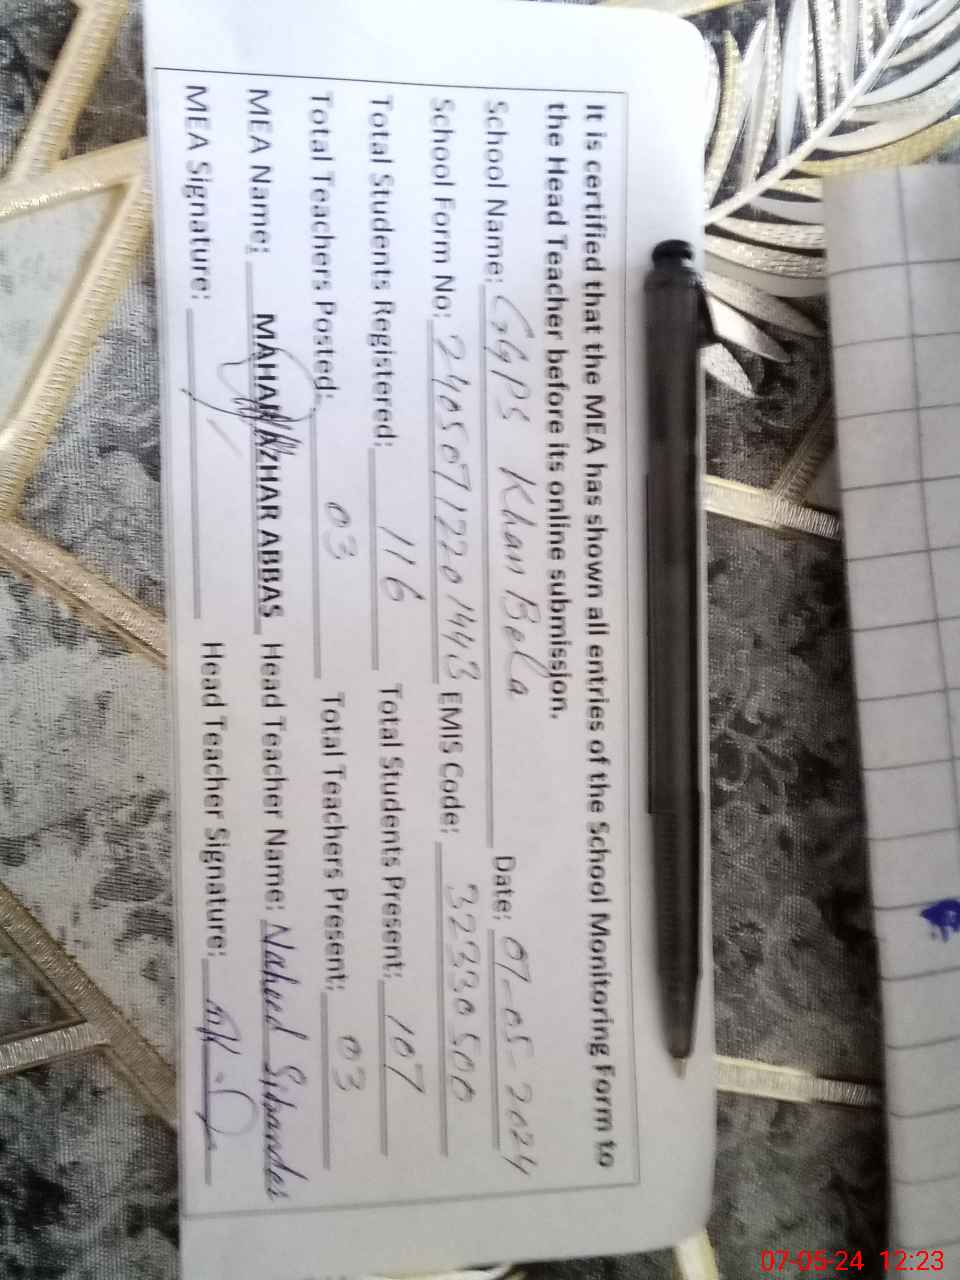 It is certified that the MEA has shown all entries of the School Monitoring Form to
the Head Teacher before its online submission.
School Name: GGPS Khan Bela Date: 07-05-2024
School Form No: 24050712201443 EMIS Code: 32230500
Total Students Registered: 116 Total Students Present: 107
Total Teachers Posted: 03 Total Teachers Present: 03
MEA Name: MAHAR AZHAR ABBAS Head Teacher Name: Naheed Sikander
MEA Signature: Head Teacher Signature:
07-05-24 12:23